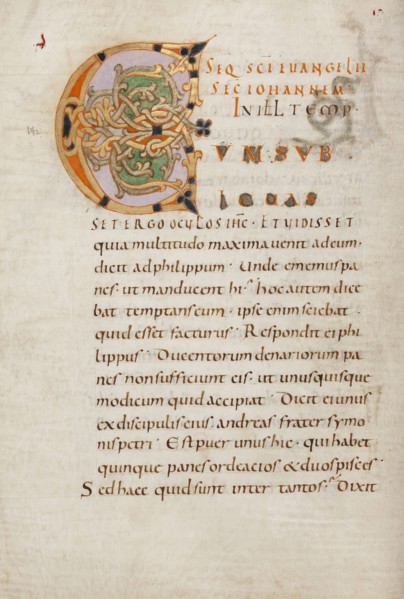 SEQ SCI EUANGELII
SEC IOHANNEM
IN ILL TEMP·
CUM SUB
LEUAS
SET ERGO OCULOS IHC · ET UIDISSET
quia multitudo maxima uenit ad eum·
dicit ad philippum· Unde ememus pa
nes· ut manducent hi· hoc autem dice
bat temptans eum· ipse enim sciebat
quid esset facturus· Respondit ei phi
lippus· Ducentorum denariorum pa
nes non sufficiunt eis· ut unusquisque
modicum quid accipiat· Dicit ei unus
ex discipulis eius andreas frater symo
nis petri· Est puer unus hic· qui habet
quinque panes ordeacios & duos pisces·
Sed haec quid sunt inter tantos· Dixit